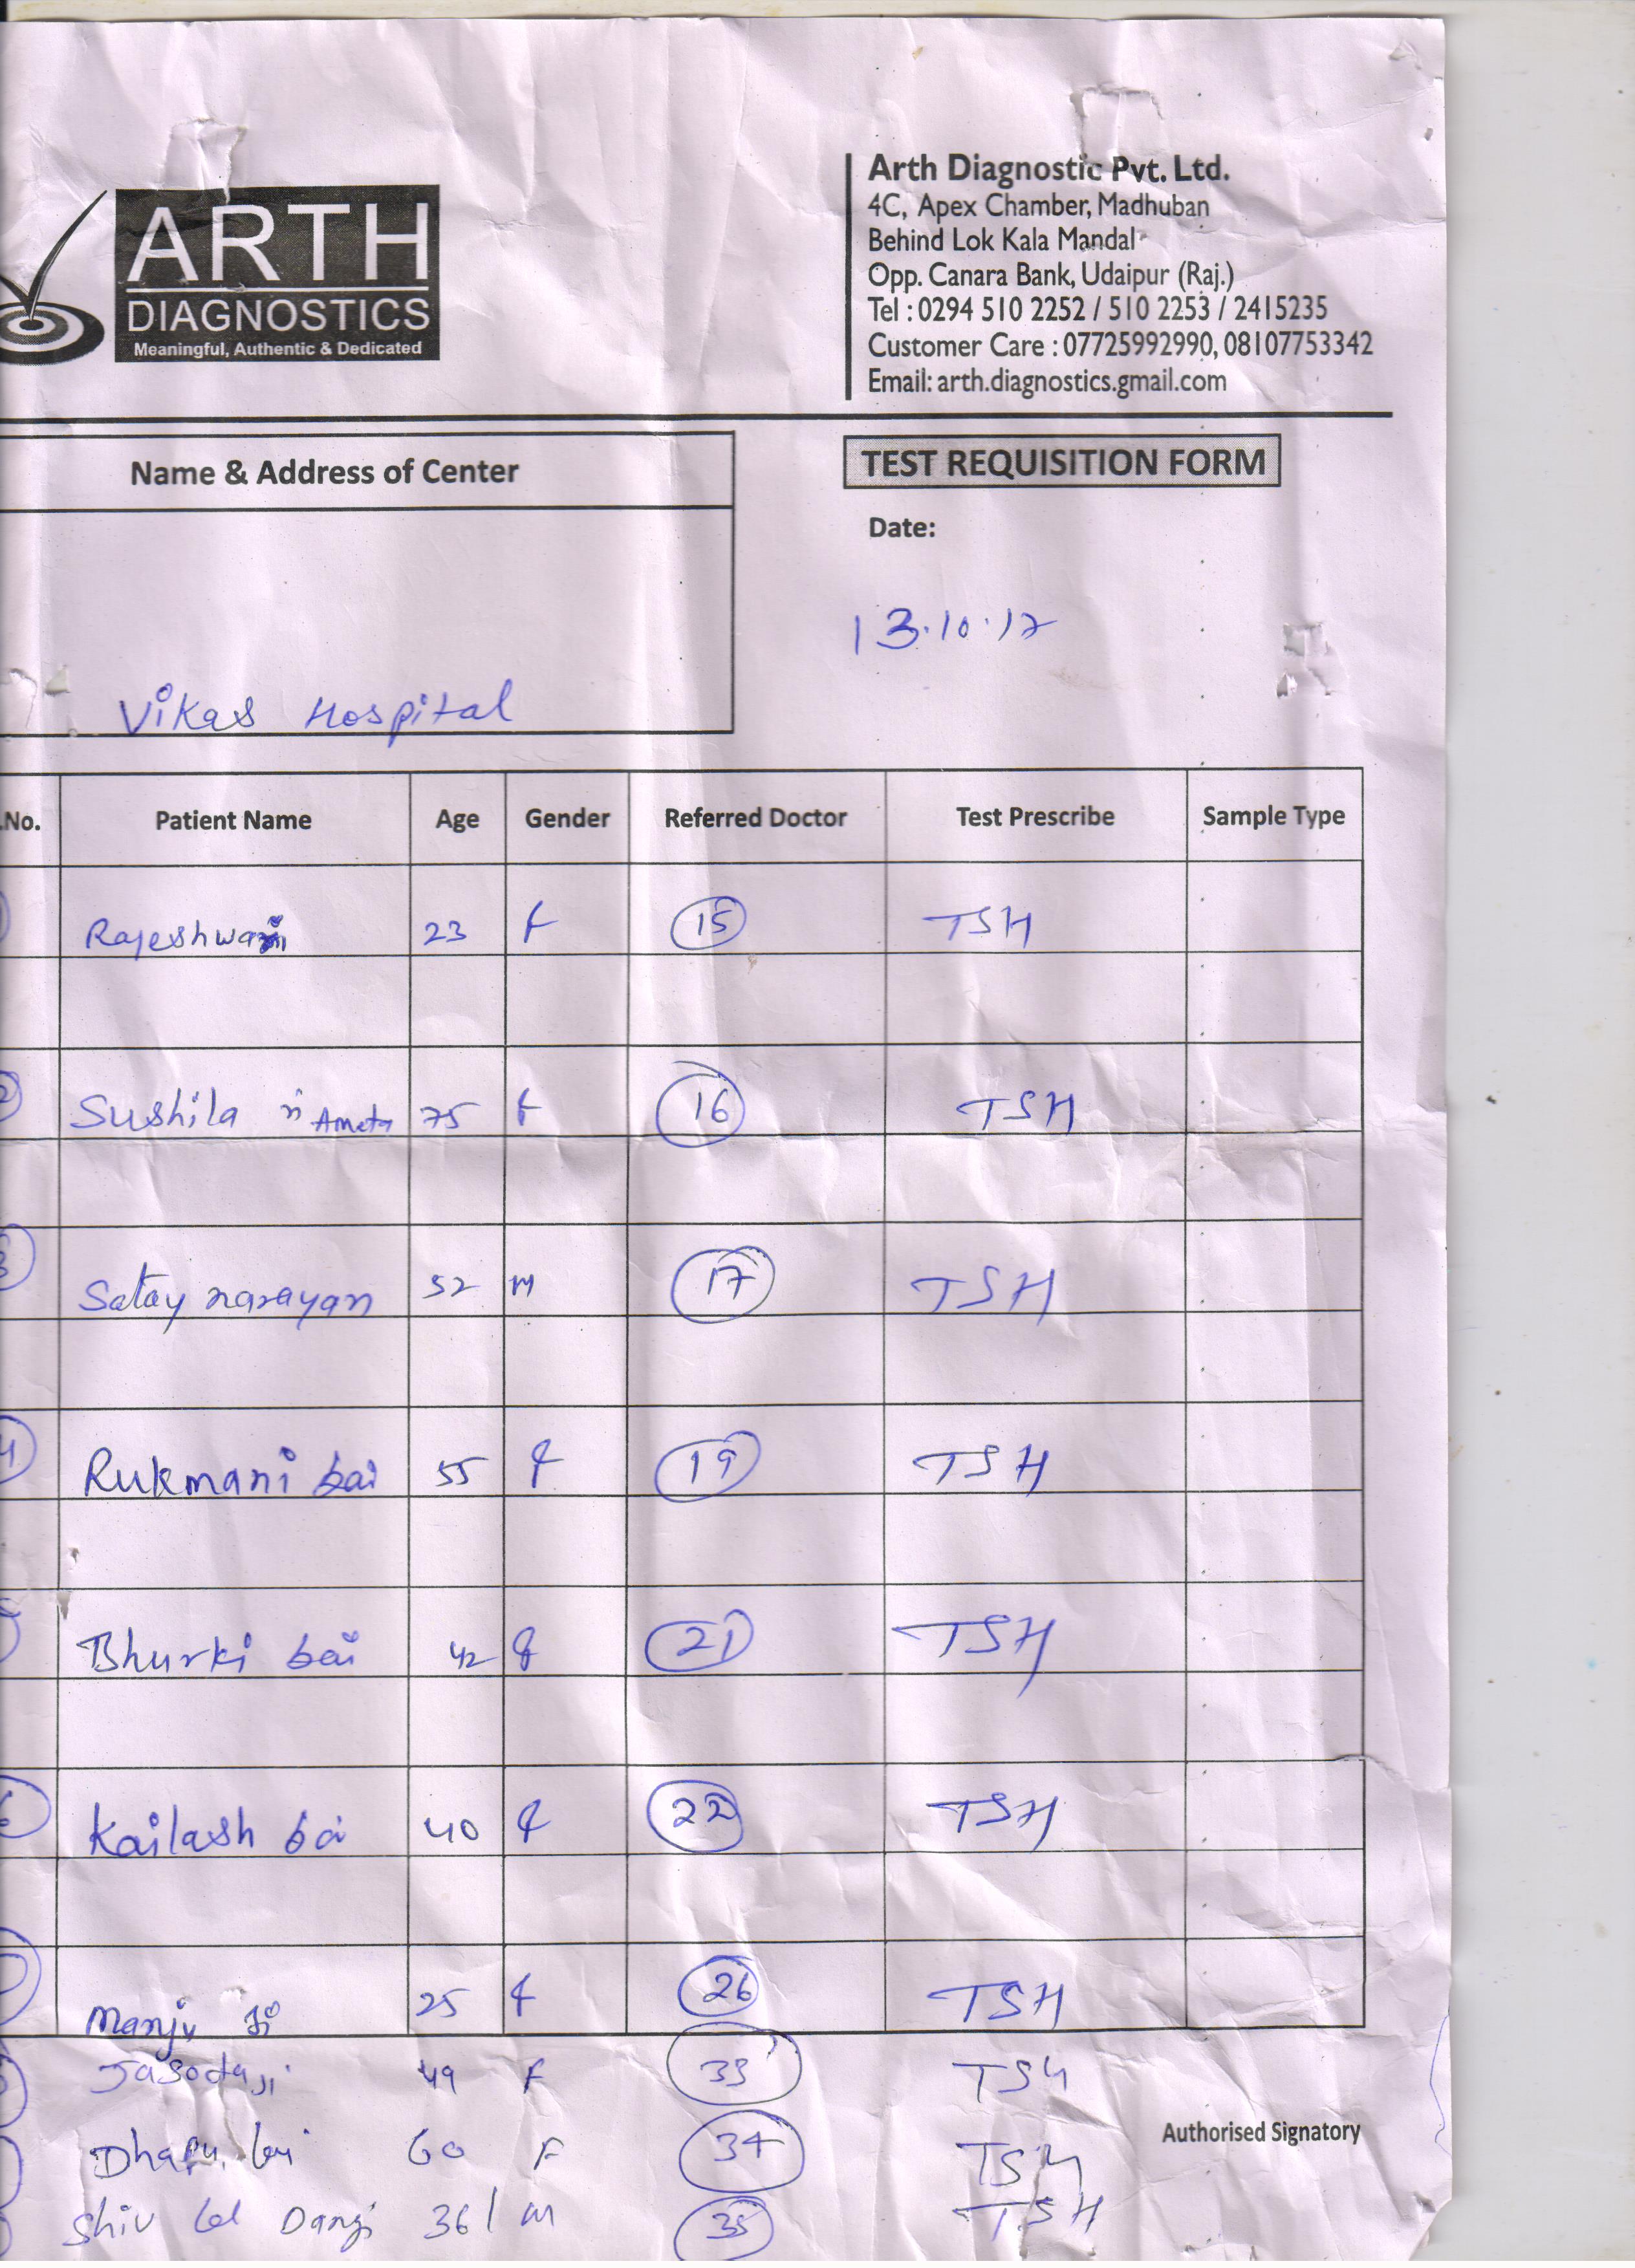 ARTH
DIAGNOSTICS
Meaningful, Authentic & Dedicated
Arth Diagnostic Pvt. Ltd.
4C, Apex Chamber, Madhuban
Behind Lok Kala Mandal
Opp. Canara Bank, Udaipur (Raj.)
Tel : 0294 510 2252 / 510 2253 / 2415235
Customer Care : 07725992990, 08107753342
Email: arth.diagnostics.gmail.com
Name & Address of Center
Vikas Hospital
TEST REQUISITION FORM
Date:
13.10.17
.No. Patient Name Age Gender Referred Doctor Test Prescribe Sample Type
Rajeshwari 23 F 15 TSH
Sushila Ameta 75 F 16 TSH
3 Satay narayan 52 M 17 TSH
4 Rukmani bai 55 F 19 TSH
Bhurki bai 42 F 21 TSH
6 Kailash bai 40 F 22 TSH
Manju ji 25 F 26 TSH
Jasoda ji 49 F 33 TSH
Authorised Signatory
Dhapu bai 60 F 34 TSH
Shiv lal Dangi 36 / M 35 TSH